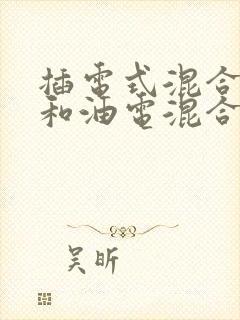 插電式混合
和油電混合
吴昕